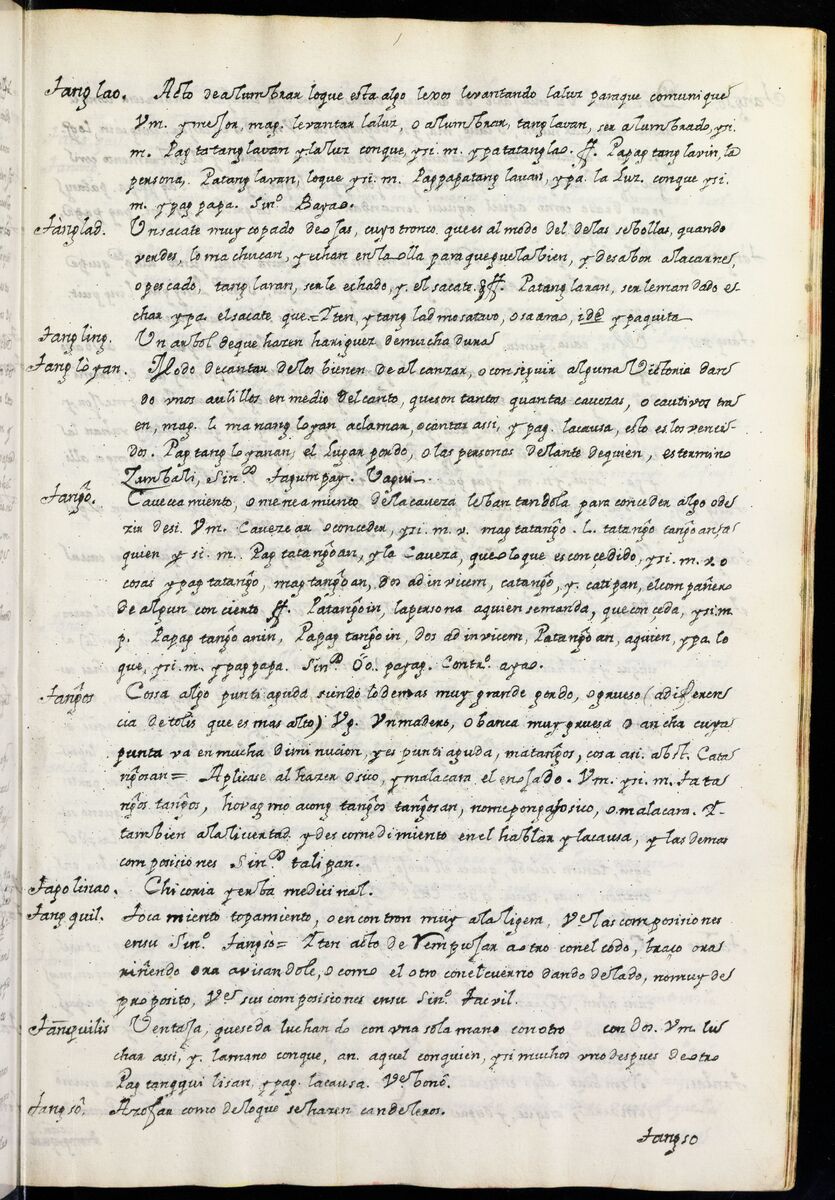 Tang lao. Acto de alumbrar loque esta algo lexos levantando la luz paraque comunique
Vm. y mejor, mag. levantar la luz, o alumbrar, tang lavan, ser alumbrado, y si.
m. Pag tatang lavan y la luz conque, y si. m. y patatangla. ff. Papag tang lavin, la
persona, Patang lavan, loque y si. m. Pagpapatang lavan, y pa. la Luz. conque y si.
m. y pag papa. Sin.º Bayao.
Tànglad. Un sacate muy copado de ojas, cuyo tronco que es al modo del de las sebollas, quando
verdes, lo machucan, y echan en la olla para que huela bien, y de sabor a la carne,
o pescado, tang laran, serle echado, y. el sacate. ff. Patang laran, ser le mandado e
char y pa. el sacate que = Iten, y tang lad mo sa tavo, o sa arao, id@ y paquita
Tang ling. Un arbol de que hazen hariguez de mucha dura
Tang lo yan. Modo de cantar de los bienen de alcanzar, o conseguir alguna Victoria dan
do vnos aulillos en medio del canto, que son tantos quantas cavezas, o cautivos tra
en, mag. l. manang lo yan, aclamar, o cantar assi, y pag. la causa, esto es los venci
dos. Pag tang lo yanan, el Lugar por do, o las personas delante de quien, es termino
Zambali, Sin.º Tagumpay.
Tango. Caveceamiento, o meneamiento de la caveza lebantandola para conceder algo o de
zir de si. Vm. Cavezear o conceder, y si. m. v. mag tatango. l. tatango tangoan, a
quien y si. m. Pag tatangoan, y la Caveza, que o lo que es concedido, y si. m. v. o
cosas y pag tatango, mag tangoan, Dos ad invicem, catango, y. catipan, el compañero
de algun conciento ff. Patangoin, la persona a quien se manda, que conceda, y si m
p. Papag tangoanin, Papag tangoin, dos ad invicem, Patangoan, a quien, y pa. lo
que, y si. m. y pag papa. Sin.º Oo. payag. Contr.º ayao.
Tangos Cossa algo punti aguda siendo lo demas muy grande gordo, o grueso (a diferen
cia de tolis que es mas alto) Vg. Vn madero, o banca muy gruesa o ancha cuya
punta va en mucha diminucion, y es punti aguda, matangos, cosa asi. abst. Cata
ngosan =. Aplicase al hazer osico, y mala cara el enojado. Vm. y si. m. Ta ta
ngos tangos, hovag mo acong tangos tangosan, nome pongas osico, o mala cara. I-
tambien a la livertad y descomedimiento en el hablar y la causa, y las demas
composiciones Sin.º talipan.
Tapolinao. Chicoria yerba medicinal.
Tang quil. Tocamiento topamiento, o encontron muy a la ligera, Ve las composisiones
en su Sin.º Tangso = Iten acto de rempujar a otro con el codo, braço ora
riñendo ora avisandole, o como el otro con el cuerno dando de lado, no muy de
proposito, Ve sus composiciones en su Sin.º Tacvil.
Tangquilis Ventaja, que se da luchando con vna sola mano con otro con Dos. Vm. lu
char assi, y. la mano conque, an. aquel con quien, y si muchos vno despues de otro
Pag tangqui lisan, y pag. la causa. Ve bono.
Tang so. Azofar como de lo que se hazen candeleros.
Tangso